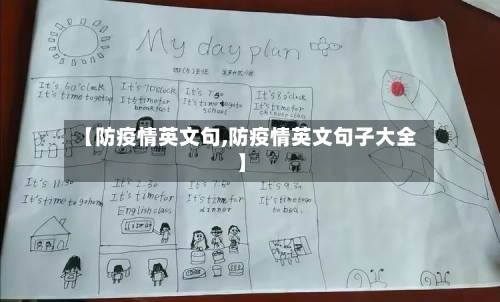 My day plan
It's 6 o'clock
It's time to get up
It's 7 o'clock
It's time for
breakfast
It's 7:30
It's time to go to
school
It's 8 o'clock
It's time for
Chinese class
【防疫情英文句,防疫情英文句子大全
】
It's 11:30
It's time to go home
It's 2:30
It's time for
English class
It's time for
dinner
It's 9:30
It's time to go
to bed.